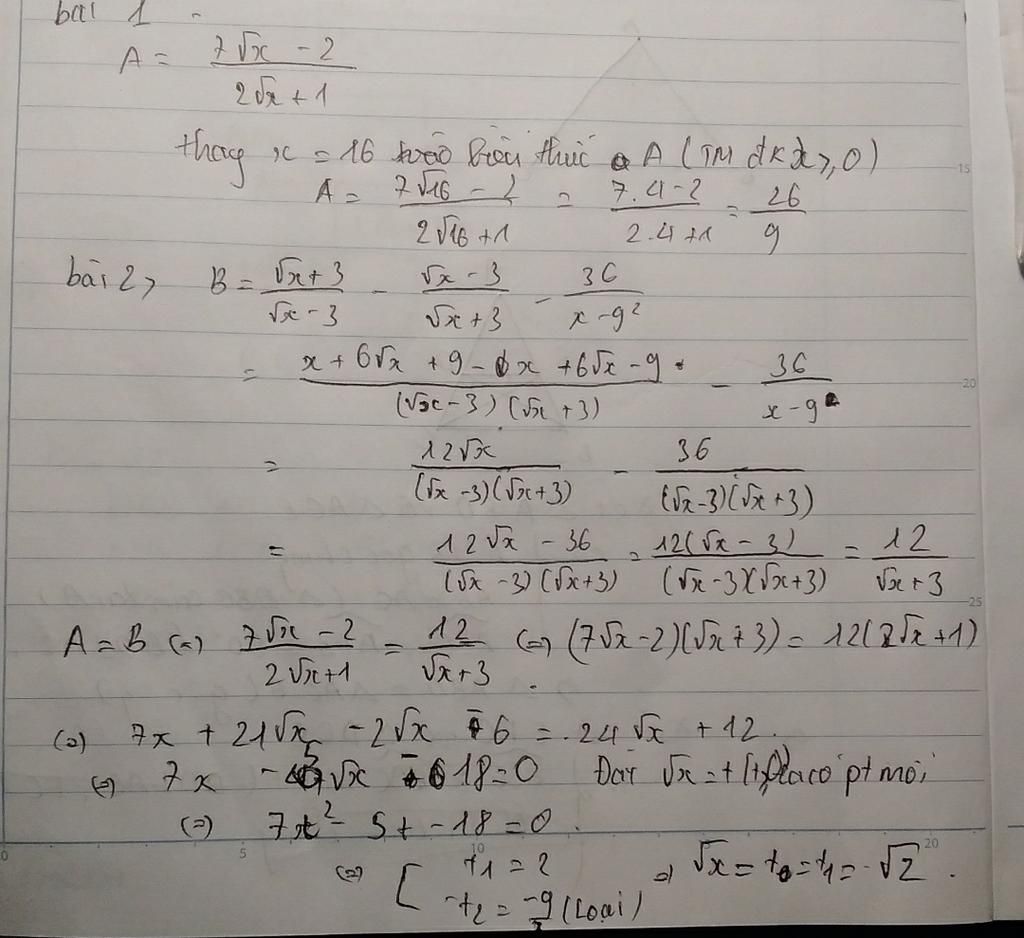 bài 1
A = \frac{7\sqrt{x} - 2}{2\sqrt{x} + 1}
thay x = 16 vào biểu thức A (TM đk x ≥ 0)
A = \frac{7\sqrt{16} - 2}{2\sqrt{16} + 1} = \frac{7.4 - 2}{2.4 + 1} = \frac{26}{9}
bài 2, B = \frac{\sqrt{x} + 3}{\sqrt{x} - 3} - \frac{\sqrt{x} - 3}{\sqrt{x} + 3} - \frac{36}{x - 9^2}
= \frac{x + 6\sqrt{x} + 9 - x + 6\sqrt{x} - 9}{(\sqrt{x} - 3)(\sqrt{x} + 3)} - \frac{36}{x - 9}
= \frac{12\sqrt{x}}{(\sqrt{x} - 3)(\sqrt{x} + 3)} - \frac{36}{(\sqrt{x} - 3)(\sqrt{x} + 3)}
= \frac{12\sqrt{x} - 36}{(\sqrt{x} - 3)(\sqrt{x} + 3)} = \frac{12(\sqrt{x} - 3)}{(\sqrt{x} - 3)(\sqrt{x} + 3)} = \frac{12}{\sqrt{x} + 3}
A = B (=) \frac{7\sqrt{x} - 2}{2\sqrt{x} + 1} = \frac{12}{\sqrt{x} + 3} (=) (7\sqrt{x} - 2)(\sqrt{x} + 3) = 12(2\sqrt{x} + 1)
(=) 7x + 21\sqrt{x} - 2\sqrt{x} - 6 = 24\sqrt{x} + 12.
(=) 7x - 5\sqrt{x} - 18 = 0 Đặt \sqrt{x} = t ta có pt mới
(=) 7t^2 - 5t - 18 = 0.
(=) [ t_1 = 2 => \sqrt{x} = t = t_1 = \sqrt{2}.
t_2 = \frac{-9}{7} (loại)
15
20
25
0 5 10 20